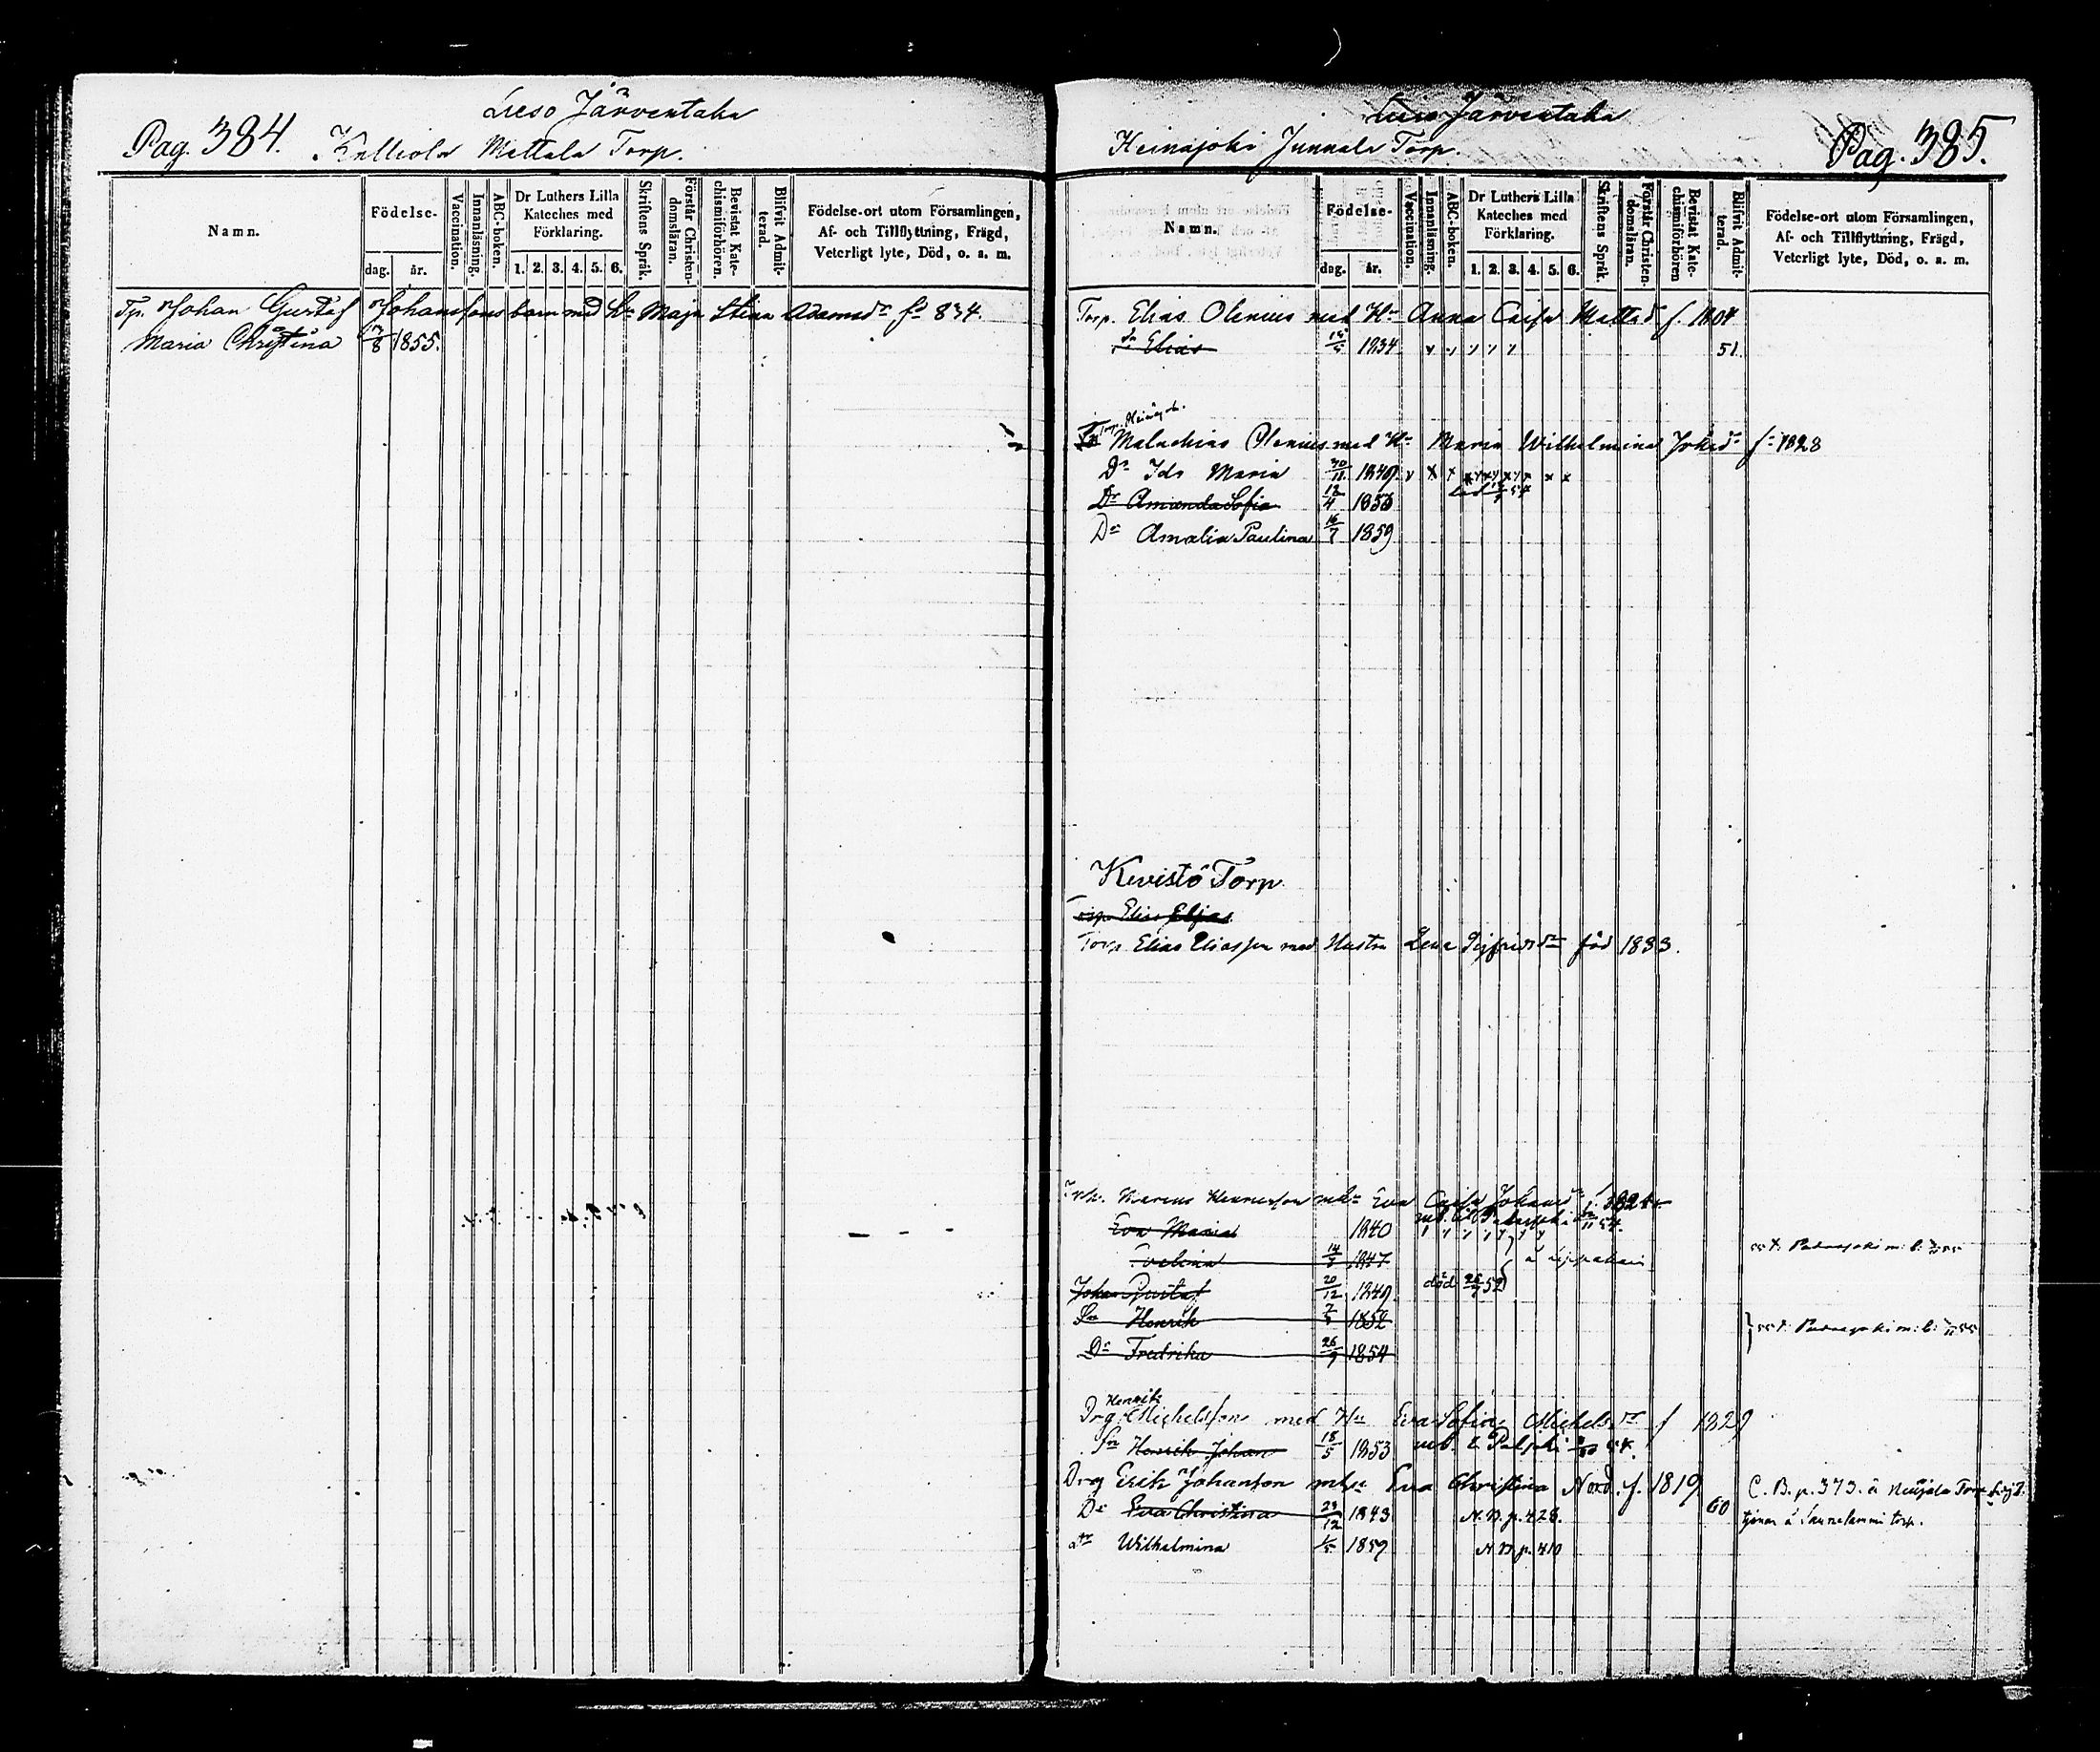 Pag. 384.
Lieso Järventaka
Kalliola Mattala Torp.
Namn.
Födelse-
dag. år.
Vaccination.
Innanläsning.
ABC-boken.
Dr Luthers Lilla Kateches med Förklaring.
1. 2. 3. 4. 5. 6.
Skriftens Språk.
Förstår Christendomsläran.
Bevistat Katechismiförhören.
Blifvit Admitterad.
Födelse-ort utom Församlingen,
Af- och Tillflyttning, Frägd,
Veterligt lyte, Död, o. a. m.
Tp. Johan Gustaf Johanssons barn med h. Maja Stina Adamsdr fö 834.
Maria Christina 17/8 1855.
Lieso Järventaka
Heinäjoki Junnala Torp.
Pag. 385.
Namn.
Födelse-
dag. år.
Vaccination.
Innanläsning.
ABC-boken.
Dr Luthers Lilla Kateches med Förklaring.
1. 2. 3. 4. 5. 6.
Skriftens Språk.
Förstår Christendomsläran.
Bevistat Katechismiförhören
Blifvit Admitterad.
Födelse-ort utom Församlingen,
Af- och Tillflyttning, Frägd,
Veterligt lyte, Död, o. a. m.
Torp. Elias Olenius med Hu Anna Caisa Mattsd f. 1804
Sn Elias 1834 51.
Malachias Olenius med Hu Maria Wilhelmina Johsdr f. 1828
Dr Ida Maria 30/11 1849
Dr Amanda Sofia 12/4 1856
Dr Amalia Paulina 16/7 1859
Kevistö Torp
Torp Elias Elias
Torp Elias Eliasson med Hustru Lena Sigfridsdr född 1833.
Eva Caisa Johansdr f. 1824
Eva Maria 1840
14/3 1847
Johan Gustaf 20/12 1849 död 52
Sn Henrik 1852
Dr Fredrika 26/9 1854
Henrik
Drg Michelsson med Hu Eva Sofia Michelsdr f 1829
Sn Henrik Johan 18/5 1853
Drg Erik Johansson mhu Eva Christina Nord. f. 1819 C. B. p. 373. Torp
Dr Eva Christina 23/12 1843 N. B. p. 428. 60 tjenar å torp.
Dr Wilhelmina 1/5 1859 N B p. 410